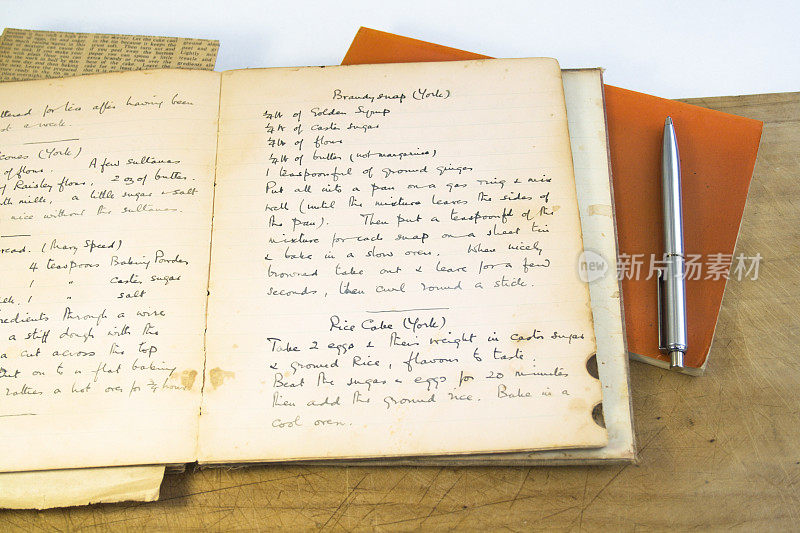 ground also
because it keeps the
if you peel away the bottom
extra brandy or rum over the
Leave the
for tea after having been
a week.
(York)
of flour. A few sultanas
Raisley flour, 2 oz of butter.
milk, a little sugar & salt
nice without the sultanas.
(Mary Speed)
4 teaspoons Baking Powder
1 " Caster sugar
1 " salt
through a wire
a stiff dough with the
a cut across the top
on to a flat baking
rather a hot oven for ¾ hour
Brandy snap (York)
¼ lb of Golden Syrup
¼ lb of caster sugar
¼ lb of flour
¼ lb of butter (not margarine)
1 teaspoonful of ground ginger
Put all into a pan on a gas ring & mix
well (until the mixture leaves the sides of
the pan). Then put a teaspoonful of the
mixture for each snap on a sheet tin
& bake in a slow oven. When nicely
browned take out & leave for a few
seconds, then curl round a stick.
Rice Cake (York)
Take 2 eggs & their weight in castor sugar
& ground Rice, flavour to taste.
Beat the sugar & eggs for 20 minutes
then add the ground rice. Bake in a
cool oven.
new 新图网